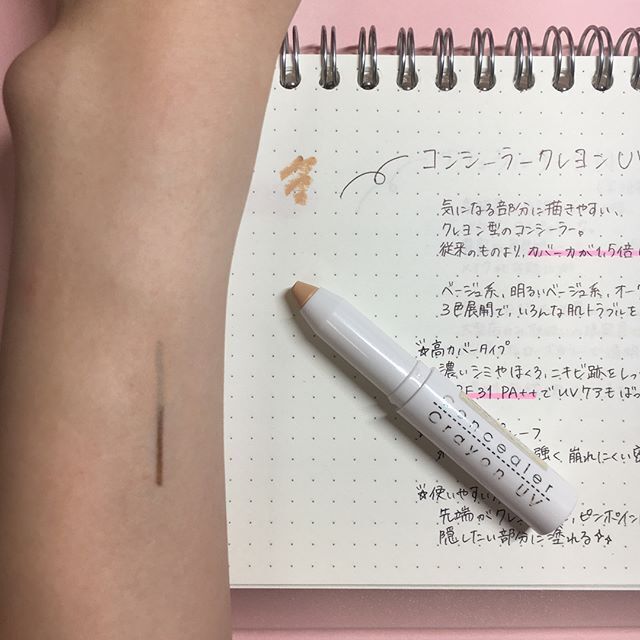 コンシーラークレヨン UV
気になる部分に描きやすい、
クレヨン型のコンシーラー。
従来のものより、カバー力が1.5倍
ベージュ系、明るいベージュ系、オーク
3色展開で、いろんな肌トラブルを
☆高カバータイプ
濃いシミやほくろ、ニキビ跡をしっ
31 PA++でUVケアもばっ
ープルーフ
強く崩れにくい
☆使いやすい
先端がクレ ピンポイン
隠したい部分に塗れる☆
Concealer
Crayon UV